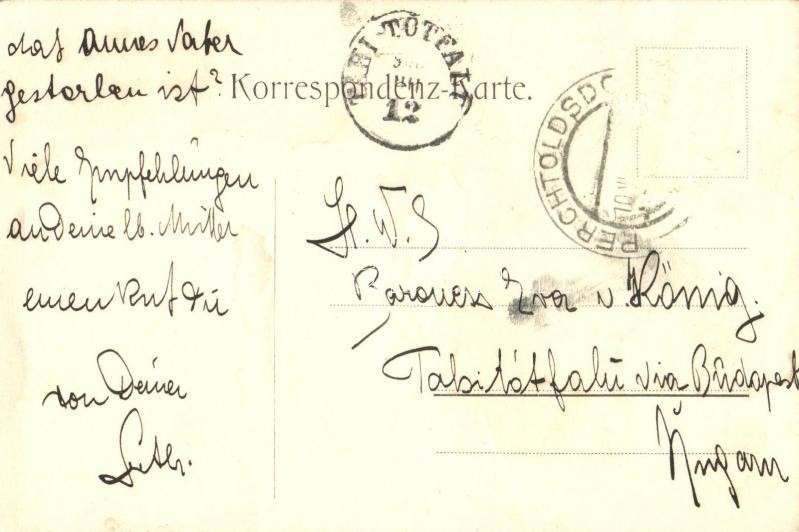 daß Annes Vater
gestorben ist?
Korrespondenz-Karte.
TÓTFAL
12
PERCHTOLDSDO
Viele Empfehlungen
an Deine lb. Mutter
einen Kuß Dir
von Deiner
H. W. G
Baroness Eva v. König.
Tabitótfalu via Budapest
Ungarn